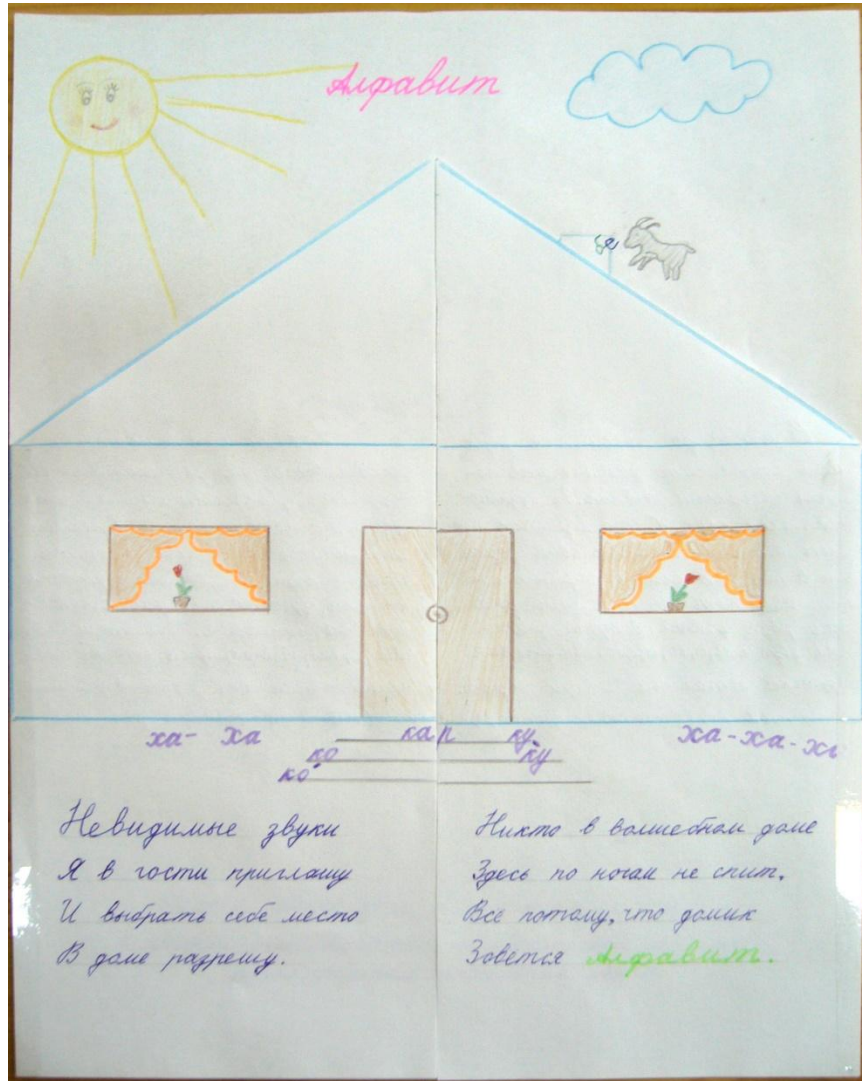 Алфавит
ха- ха
кар
ку-
ку
ко-
ко
ха-ха-ха
Невидимые звуки
Я в гости приглашу
И выбрать себе место
В доме разрешу.
Никто в волшебном доме
Здесь по ночам не спит,
Все потому, что домик
Зовется Алфавит.